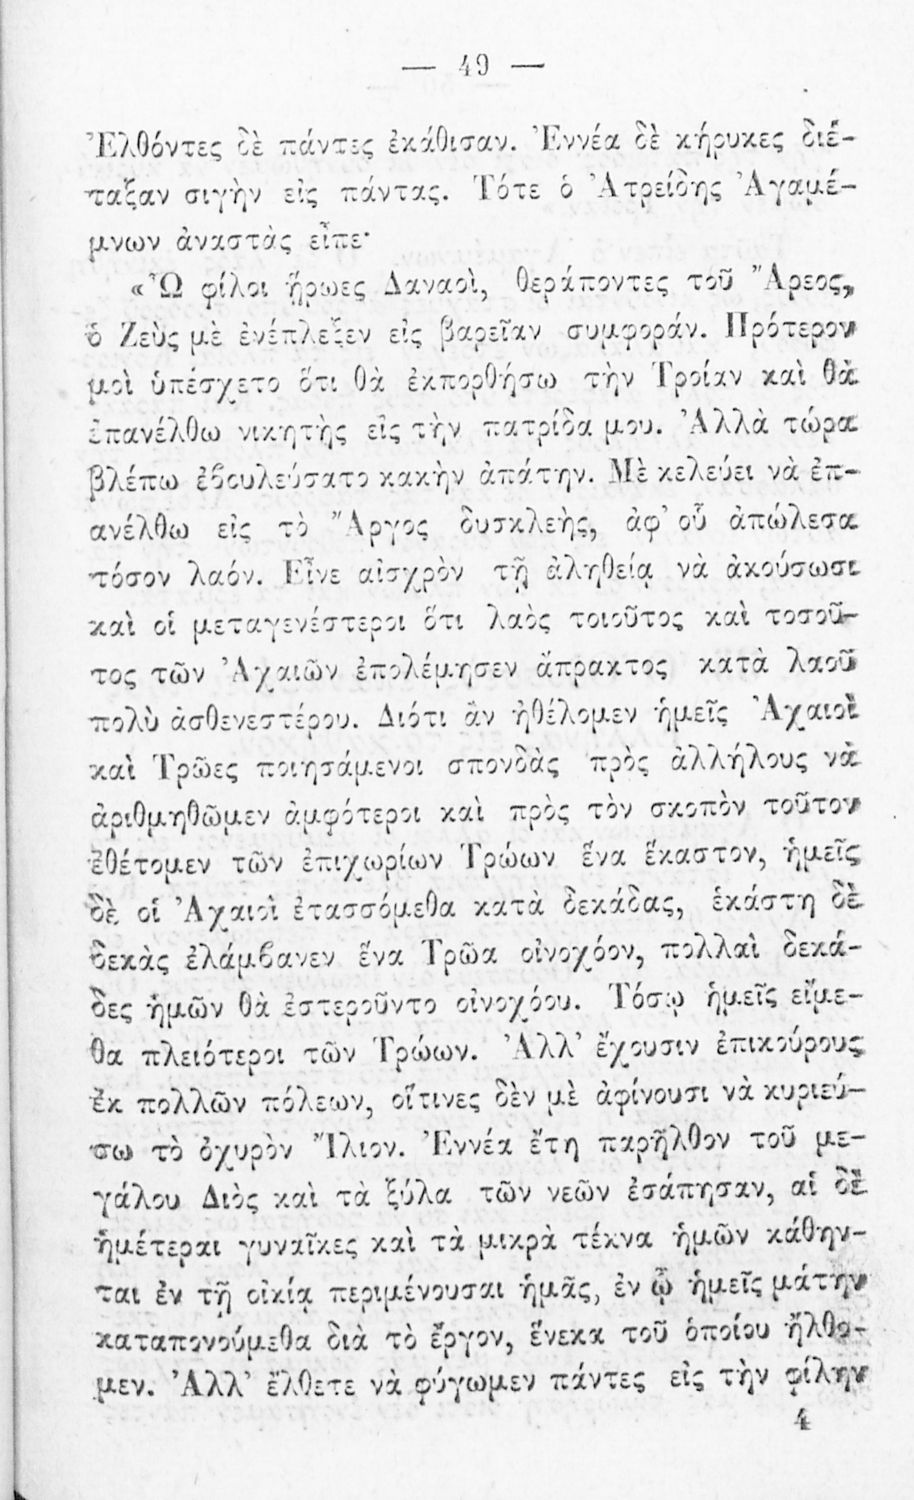 — 49 —
Ἐλθόντες δὲ πάντες ἐκάθισαν. Ἐννέα δὲ κήρυκες διέ-
ταξαν σιγὴν εἰς πάντας. Τότε ὁ Ἀτρείδης Ἀγαμέ-
μνων ἀναστὰς εἶπε·
«Ὦ φίλοι ἥρωες Δαναοὶ, θεράποντες τοῦ Ἄρεος,
ὁ Ζεὺς μὲ ἐνέπλεξεν εἰς βαρεῖαν συμφοράν. Πρότερον
μοὶ ὑπέσχετο ὅτι θὰ ἐκπορθήσω τὴν Τροίαν καὶ θὰ
ἐπανέλθω νικητὴς εἰς τὴν πατρίδα μου. Ἀλλὰ τώρα
βλέπω ἐβουλεύσατο κακὴν ἀπάτην. Μὲ κελεύει νὰ ἐπ-
ανέλθω εἰς τὸ Ἄργος δυσκλεὴς, ἀφ’ οὗ ἀπώλεσα
τόσον λαόν. Εἶνε αἰσχρὸν τῇ ἀληθείᾳ νὰ ἀκούσωσι
καὶ οἱ μεταγενέστεροι ὅτι λαὸς τοιοῦτος καὶ τοσοῦ-
τος τῶν Ἀχαιῶν ἐπολέμησεν ἄπρακτος κατὰ λαοῦ
πολὺ ἀσθενεστέρου. Διότι ἂν ἠθέλομεν ἡμεῖς Ἀχαιοὶ
καὶ Τρῶες ποιησάμενοι σπονδὰς πρὸς ἀλλήλους νὰ
ἀριθμηθῶμεν ἀμφότεροι καὶ πρὸς τὸν σκοπὸν τοῦτον
ἐθέτομεν τῶν ἐπιχωρίων Τρώων ἕνα ἕκαστον, ἡμεῖς
δὲ οἱ Ἀχαιοὶ ἐτασσόμεθα κατὰ δεκάδας, ἑκάστη δὲ
δεκὰς ἐλάμβανεν ἕνα Τρῶα οἰνοχόον, πολλαὶ δεκά-
δες ἡμῶν θὰ ἐστεροῦντο οἰνοχόου. Τόσῳ ἡμεῖς εἴμε-
θα πλειότεροι τῶν Τρώων. Ἀλλ’ ἔχουσιν ἐπικούρους
ἐκ πολλῶν πόλεων, οἵτινες δὲν μὲ ἀφίνουσι νὰ κυριεύ-
σω τὸ ὀχυρὸν Ἴλιον. Ἐννέα ἔτη παρῆλθον τοῦ με-
γάλου Διὸς καὶ τὰ ξύλα τῶν νεῶν ἐσάπησαν, αἱ δὲ
ἡμέτεραι γυναῖκες καὶ τὰ μικρὰ τέκνα ἡμῶν κάθην-
ται ἐν τῇ οἰκίᾳ περιμένουσαι ἡμᾶς, ἐν ᾧ ἡμεῖς μάτην
καταπονούμεθα διὰ τὸ ἔργον, ἕνεκα τοῦ ὁποίου ἤλθο-
μεν. Ἀλλ’ ἔλθετε νὰ φύγωμεν πάντες εἰς τὴν φίλην
4